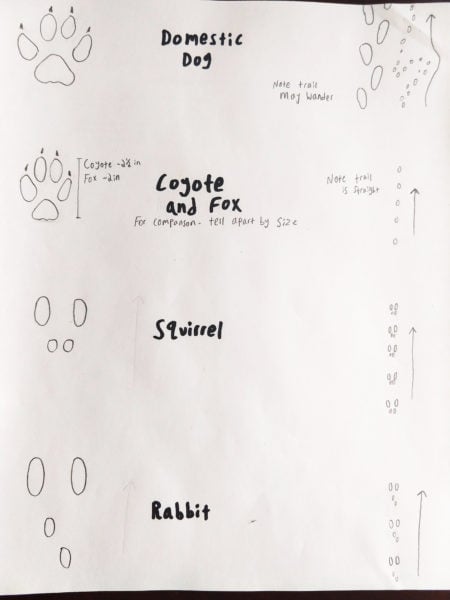 Domestic
Dog
Note trail
May Wander
Coyote -2½ in
Fox -2in
Coyote
and Fox
For comparison- tell apart by Size
Note trail
is straight
Squirrel
Rabbit